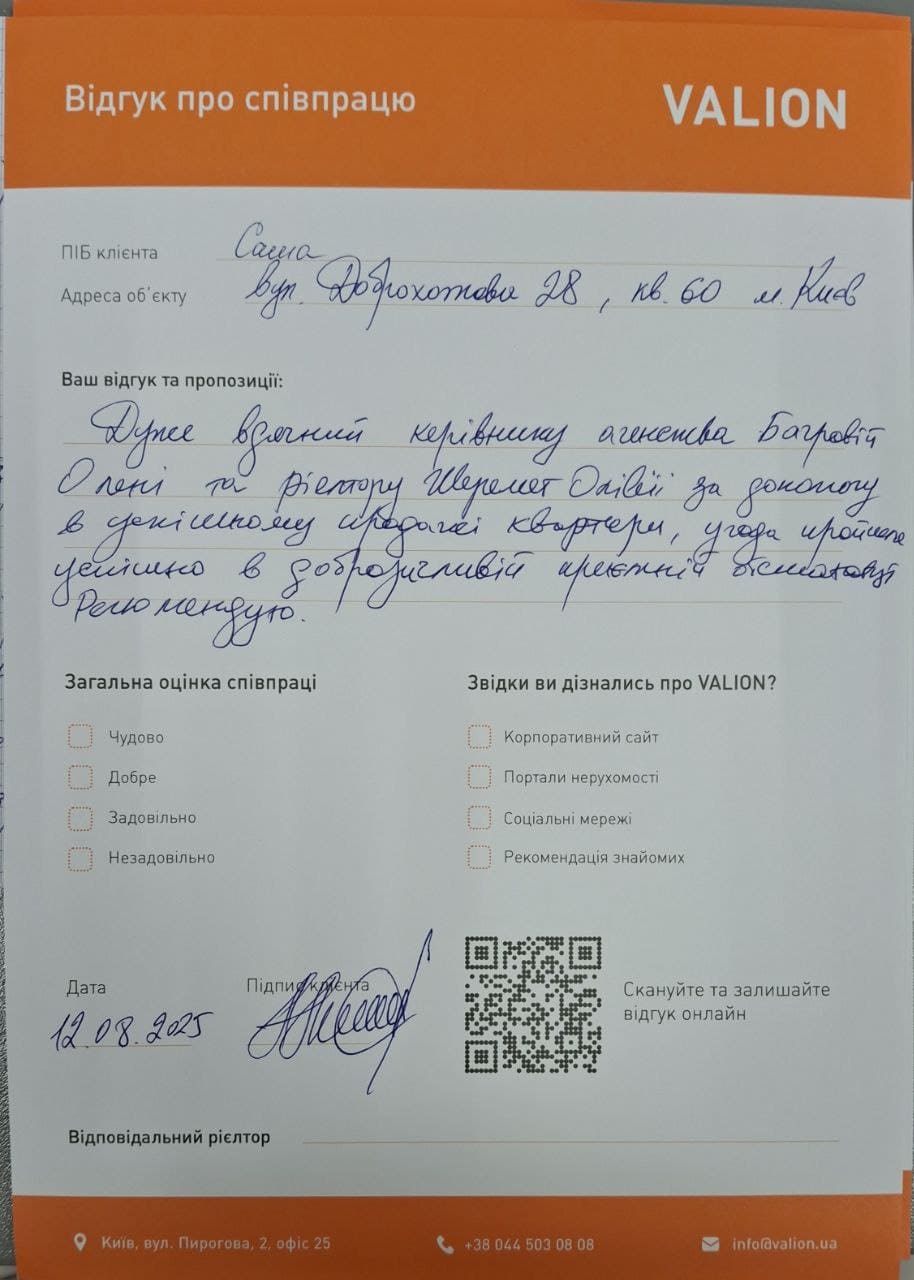 Відгук про співпрацю
VALION
ПІБ клієнта Саша
Адреса об'єкту вул. Доброхотова 28, кв. 60 м. Київ
Ваш відгук та пропозиції:
Дуже вдячний керівнику агенства Багровій
Олені та рієлтору Шеремет Олівії за допомогу
в успішному продажі квартири, угода пройшла
успішно в доброзичливій приємній обстановці
Рекомендую.
Загальна оцінка співпраці
Чудово
Добре
Задовільно
Незадовільно
Звідки ви дізнались про VALION?
Корпоративний сайт
Портали нерухомості
Соціальні мережі
Рекомендація знайомих
Дата
12.08.2025
Підпис клієнта
Скануйте та залишайте
відгук онлайн
Відповідальний рієлтор
Київ, вул. Пирогова, 2, офіс 25
+38 044 503 08 08
info@valion.ua